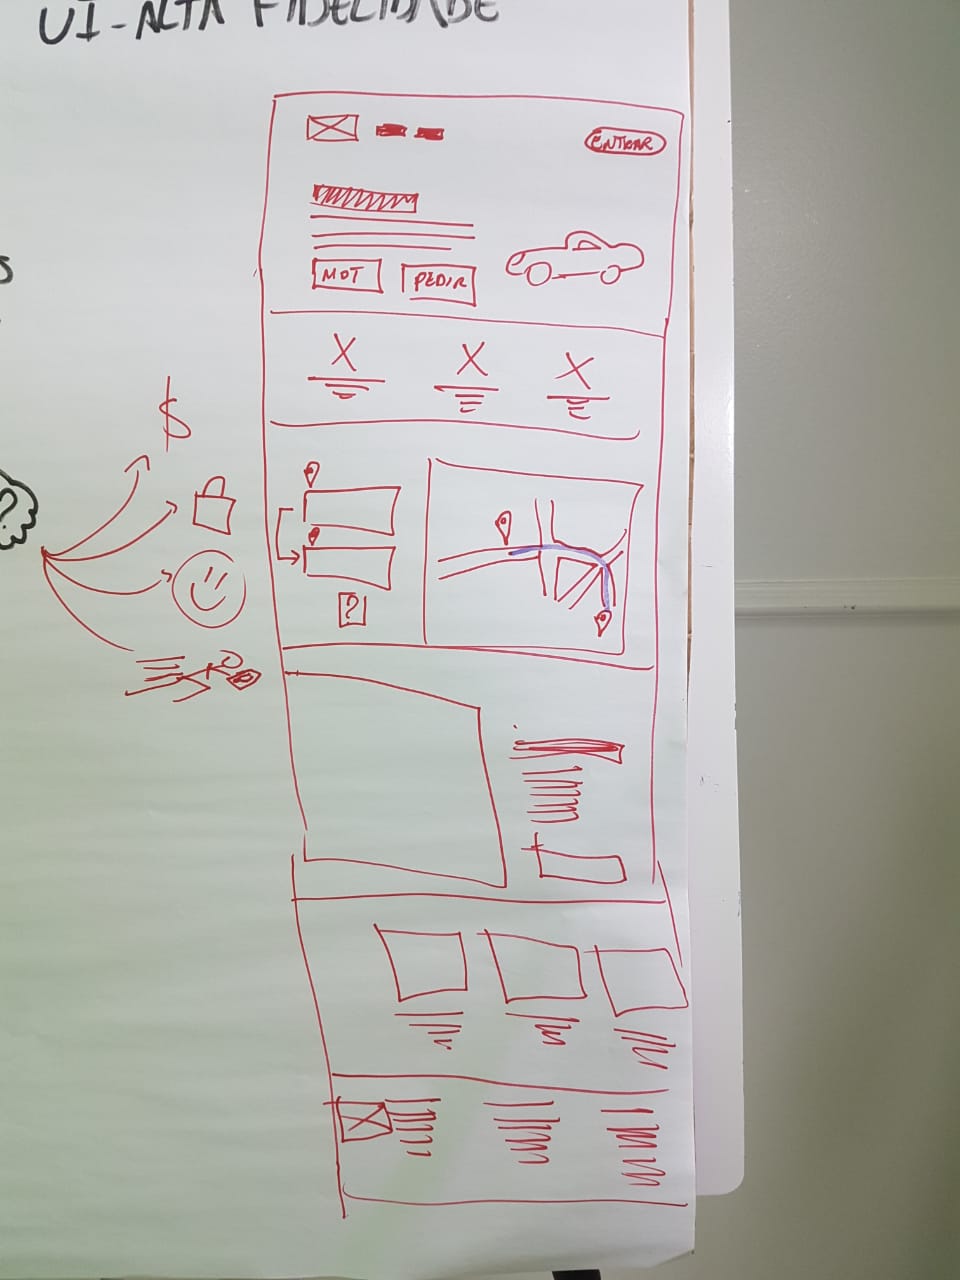 UI-ALTA FIDELIDADE
ENTRAR
MOT
PEDIR
X
X
X
$
S
?
?